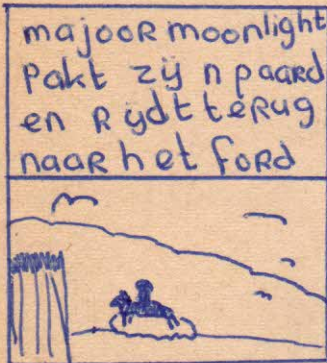 majoor moonlight
pakt zij n paard
en rijdt terug
naar het ford